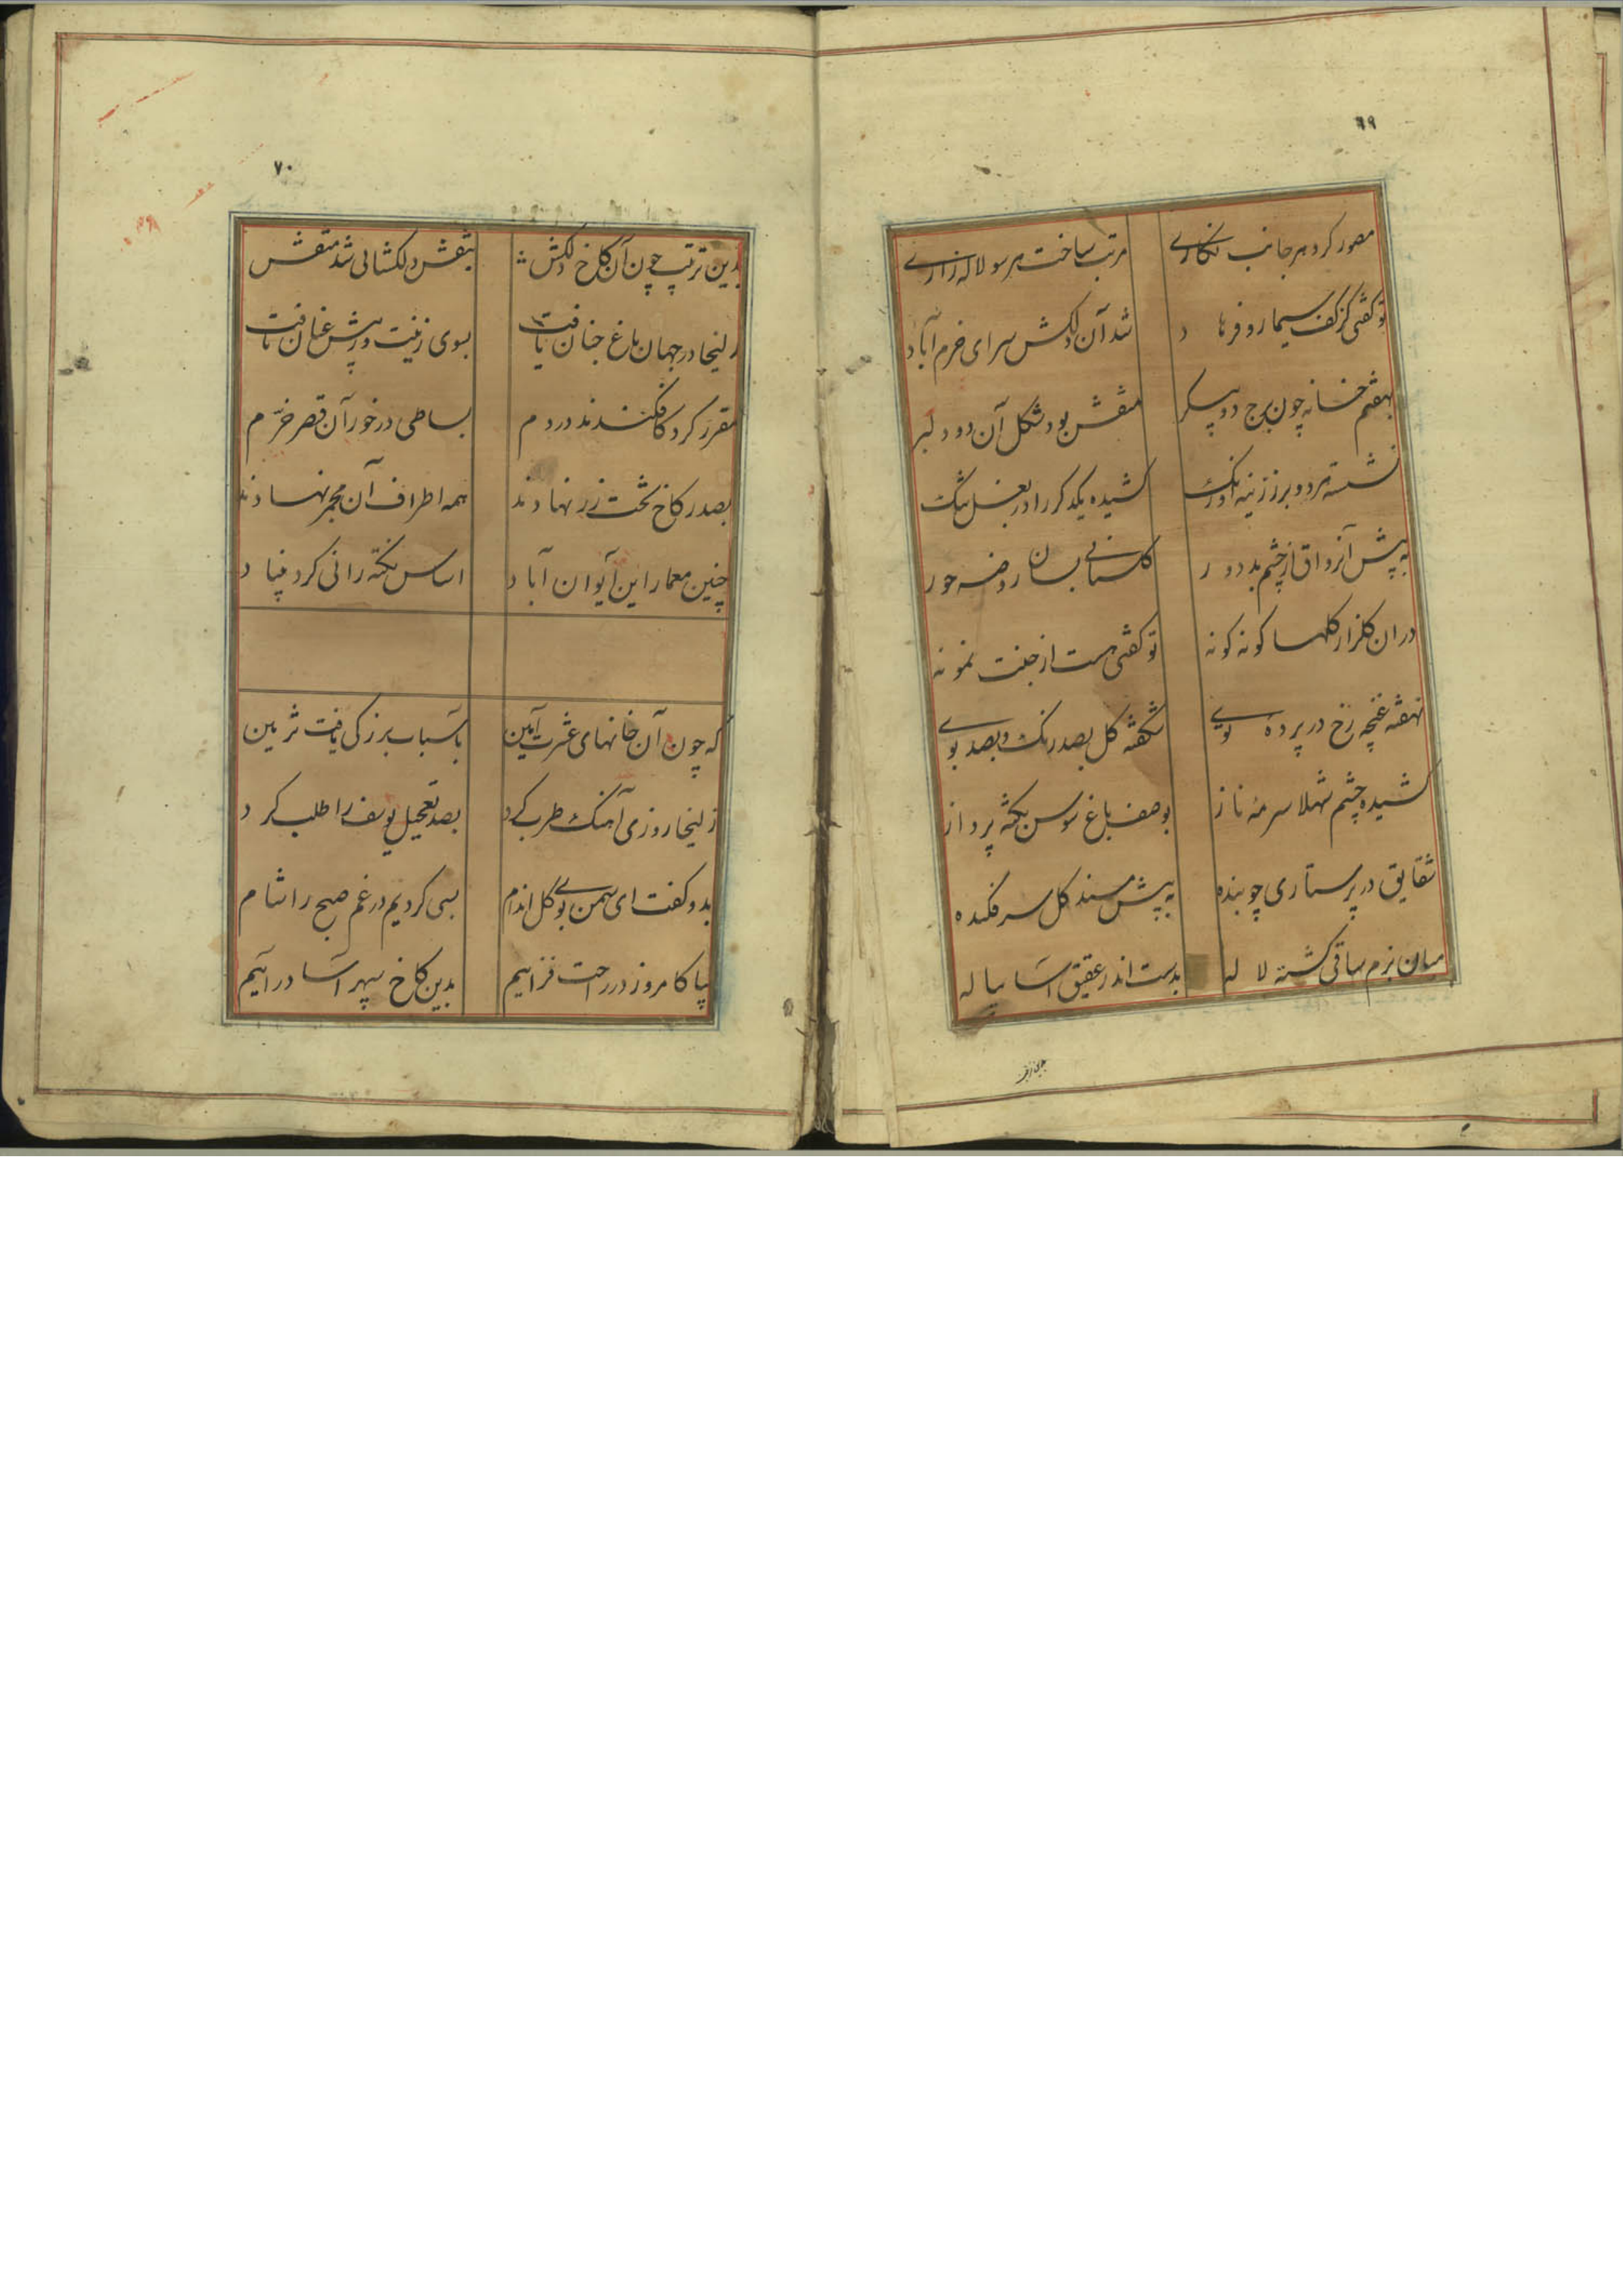 ۶۹
مصور کرد هر جانب نگاری مرتب ساخت هر سو لاله زاری
تو گفتی کز کف سیمار و فرهاد شد آن دلکش سرای خرم آباد
بهفتم خانه چون برج دو پیکر منقش بود شکل آن دو دلبر
نشسته هر دو بر زرینه اورنگ کشیده یکدگر را در بغل تنگ
به پیش آن رواق از چشم بد دور گلستانی بسان روضه حور
در ان گلزار گلها گونه گونه تو گفتی هست از جنت نمونه
نهفته غنچه رخ در پردهٔ توی شگفته گل بصد رنگ و بصد بوی
کشیده چشم شهلا سرمهٔ ناز بوصف باغ سوسن نکته پرداز
شقایق در پرستاری چو بنده به پیش مسند گل سر فکنده
میان بزم ساقی گشته لاله بدست اندر عقیق آسا پیاله
بدین ترتیب
۷۰
بدین ترتیب چون آن کاخ دلکش بنقش دلگشائی شد منقش
زلیخا در جهان باغ جنان یافت بسوی زینت و زیبش عنان تافت
مقرر کرد کافکندند در دم بساطی درخور آن قصر خرّم
بصدر کاخ تخت زر نهادند همه اطراف آن مجمر نهادند
چنین معمار این آیوان آباد اساس نکته رانی کرد بنیاد
که چون آن خانهای عشرت آیین باسباب بزرگی یافت تزیین
زلیخا روزی آهنگ طرب کرد بصد تعجیل یوسف را طلب کرد
بدو گفت ای سمن بوی گل اندام بسی کردیم در غم صبح را شام
بیا کامروز در راحت فزاییم بدین کاخ سپهر آسا در آییم